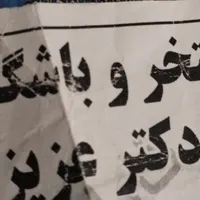 تخر و باشگ
دکتر عزیز